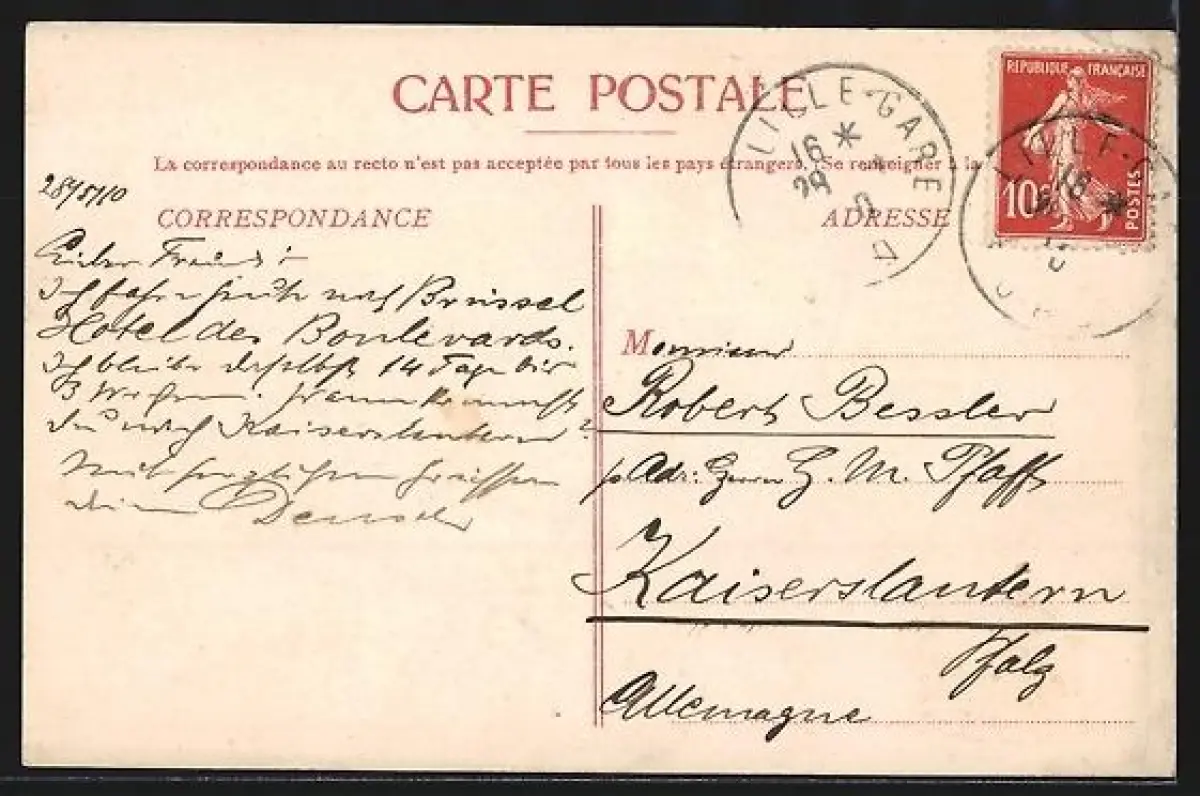 CARTE POSTALE
La correspondance au recto n'est pas acceptée par tous les pays étrangers. (Se renseigner à la
RÉPUBLIQUE FRANÇAISE
10c
POSTES
LILLE-GARE
16 *
29
LILLE-G
16 *
28/5/10
CORRESPONDANCE
ADRESSE
Lieber Freund!
Ich fahre heute nach Brüssel
Hotel des Boulevards.
Ich bleibe daselbst 14 Tage bis
3 Wochen. Wann kommst
Du nach Kaiserslautern?
Mit herzlichen Grüssen
dein
Monsieur
Robert Bessler
p. Adr: Herrn G. M. Pfaff
Kaiserslautern
Pfalz
Allemagne